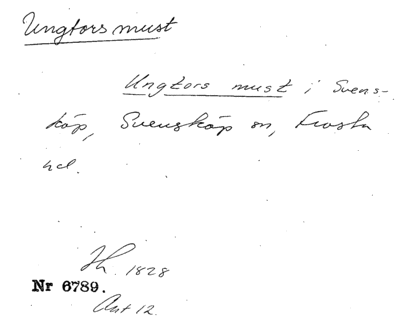 Ungtors must
Ungtors must i Svens-
köp, Svensköp sn, Frosta
hd.
1828
Nr 6789.
Akt 12.